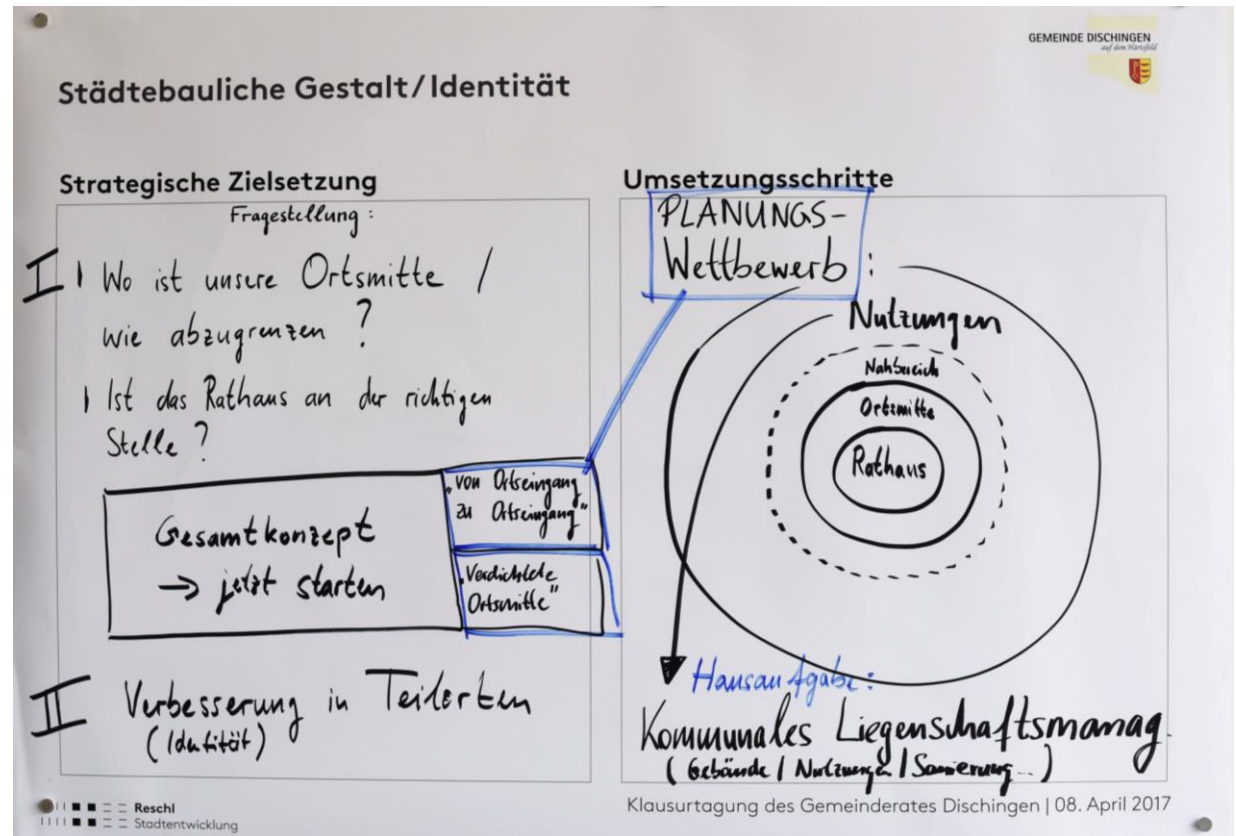 GEMEINDE DISCHINGEN
auf dem Härtsfeld
Städtebauliche Gestalt/Identität
Strategische Zielsetzung
Fragestellung:
I
Wo ist unsere Ortsmitte /
wie abzugrenzen?
Ist das Rathaus an der richtigen
Stelle?
Gesamtkonzept
→ jetzt starten
„von Ortseingang
zu Ortseingang"
„Verdichtete
Ortsmitte"
II Verbesserung in Teilorten
(Identität)
Umsetzungsschritte
PLANUNGS-
Wettbewerb:
Nutzungen
Nahbereich
Ortsmitte
Rathaus
Hausaufgabe:
Kommunales Liegenschaftsmanag.
(Gebäude / Nutzungen / Sanierung...)
Reschl
Stadtentwicklung
Klausurtagung des Gemeinderates Dischingen | 08. April 2017